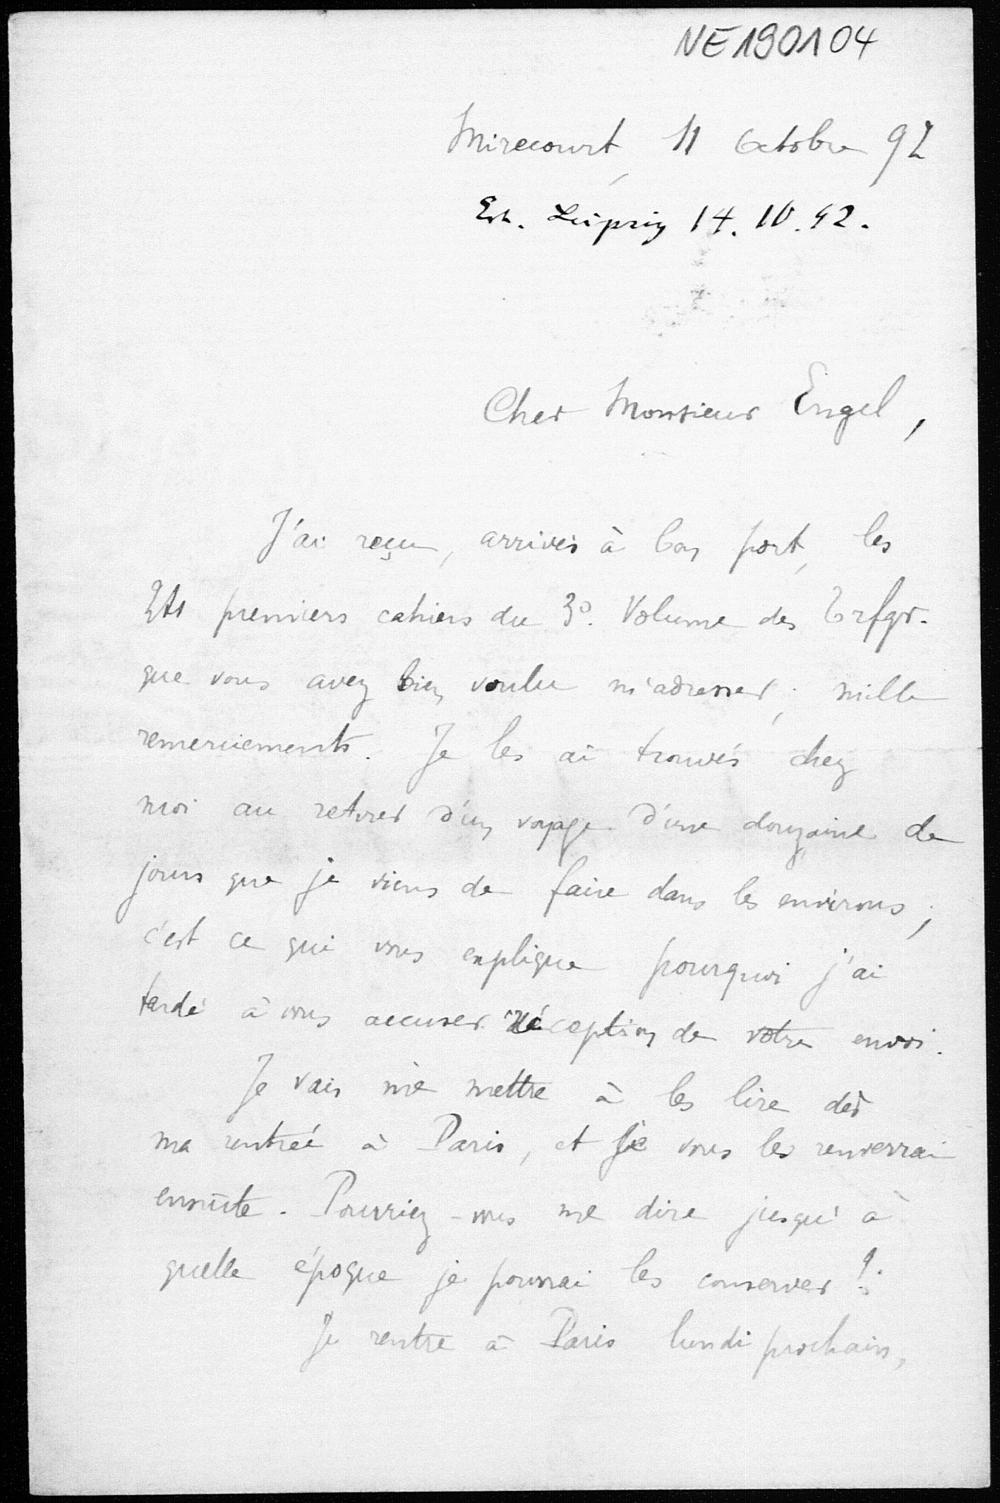 NE190104
Mirecourt, 11 Octobre 92
Erh. Leipzig 14.10.92.
Cher Monsieur Engel,
J'ai reçu, arrivés à bon port, les
premiers cahiers du 3e. Volume des Trfgr.
que vous avez bien voulu m'adresser ; mille
remerciements. Je les ai trouvés chez
moi au retour d'un voyage d'une douzaine de
jours que je viens de faire dans les environs ;
c'est ce qui vous explique pourquoi j'ai
tardé à vous accuser réception de votre envoi.
Je vais me mettre à les lire dès
ma rentrée à Paris, et je vous les renverrai
ensuite. Pourriez-vous me dire jusqu'à
quelle époque je pourrai les conserver ?
Je rentre à Paris lundi prochain,